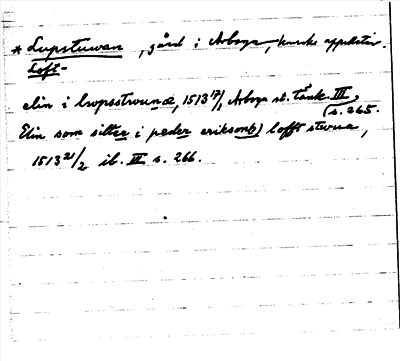 * Lupstuwan, gård i Arboga, kanske appellativ.
Loft-
elin i lwpsstwunæ, 1513 17/1, Arboga st. tänk. III,
(s. 265.
Elin som sitter i peder erikson(s) lofft stwua,
1513 21/2 ib. III s. 266.